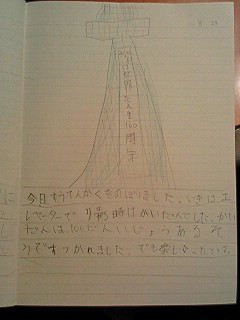 8 29
世界たんき100周年
今日すうてんかくをのぼりました。いきはエ
レベーターでり帰時はかいだんでした。かい
だんは100だんいじょうあるそ
うですつかれました。でも楽しかったです。